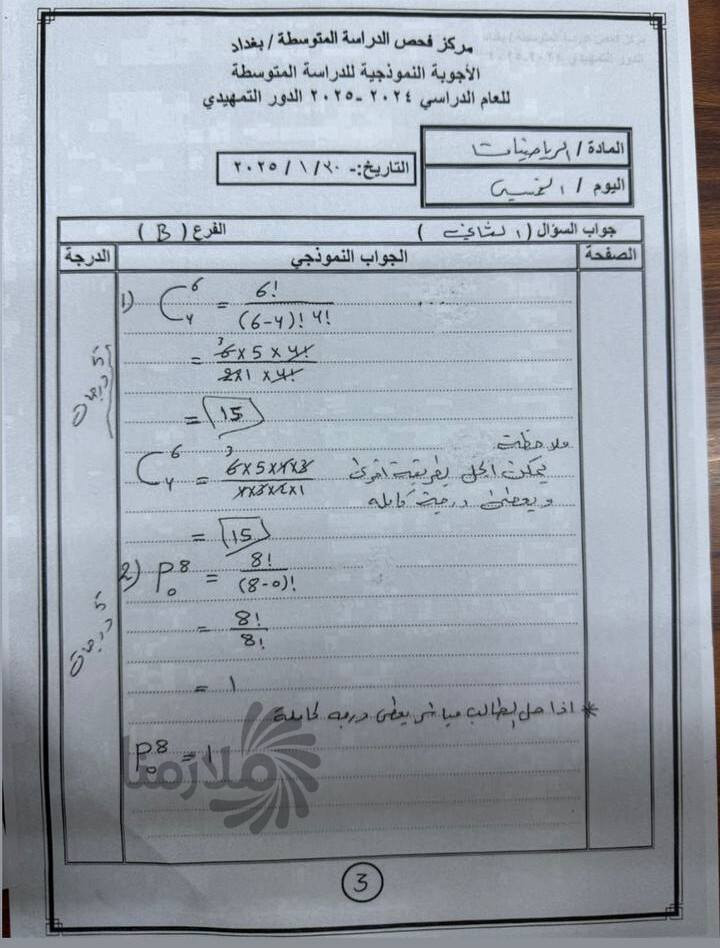 مركز فحص الدراسة المتوسطة / بغداد
الأجوبة النموذجية للدراسة المتوسطة
للعام الدراسي ٢٠٢٤ -٢٠٢٥ الدور التمهيدي
المادة / الرياضيات
اليوم / الخميس
التاريخ:- ٣٠ / ١ / ٢٠٢٥
جواب السؤال ( الثاني ) الفرع ( B )
الصفحة الجواب النموذجي الدرجة
1) C⁶₄ = 6! / (6-4)! 4!
= 6×5×4! / 2×1×4! 3
= 15
٥ درجات
ملاحظة
يمكن الحل بطريقة اخرى
و يعطى درجة كاملة
C⁶₄ = 6×5×4×3 / 4×3×2×1 3
= 15
2) P⁸₀ = 8! / (8-0)!
= 8! / 8!
= 1
٥ درجات
* اذا حل الطالب مباشر يعطى درجة كاملة
P⁸₀ = 1
ملازمنا
3